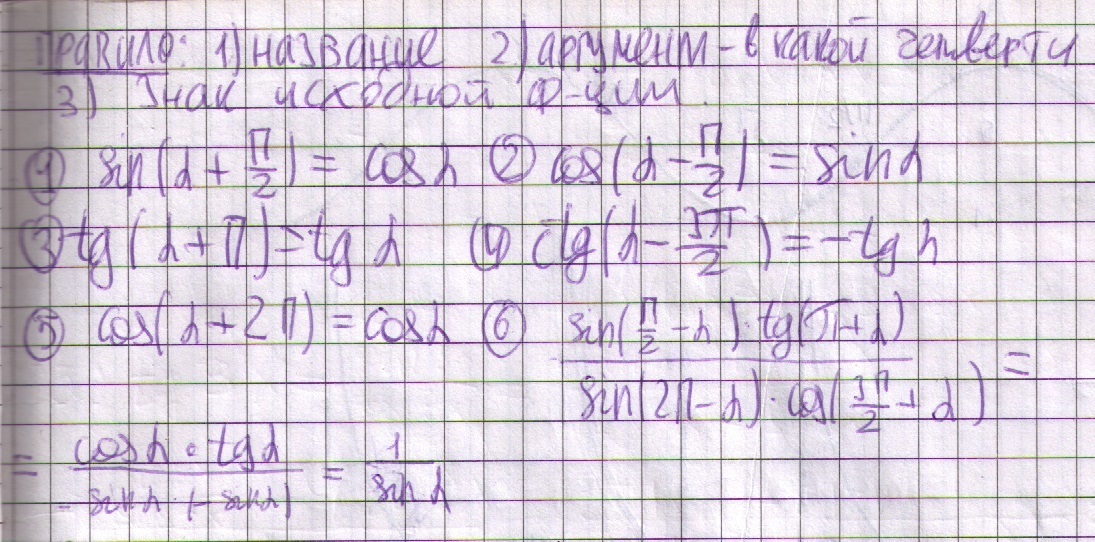 Правило: 1) название 2) аргумент - в какой четверти
3) Знак исходной ф-ции.
① sin(α + π/2) = cos α ② cos(α - π/2) = sin α
③ tg(α + π) = tg α ④ ctg(α - 3π/2) = -tg α
⑤ cos(α + 2π) = cos α ⑥ sin(π/2 - α) · tg(π + α) / sin(2π - α) · cos(3π/2 + α) =
= cos α · tg α / - sin α · (- sin α) = 1 / sin α